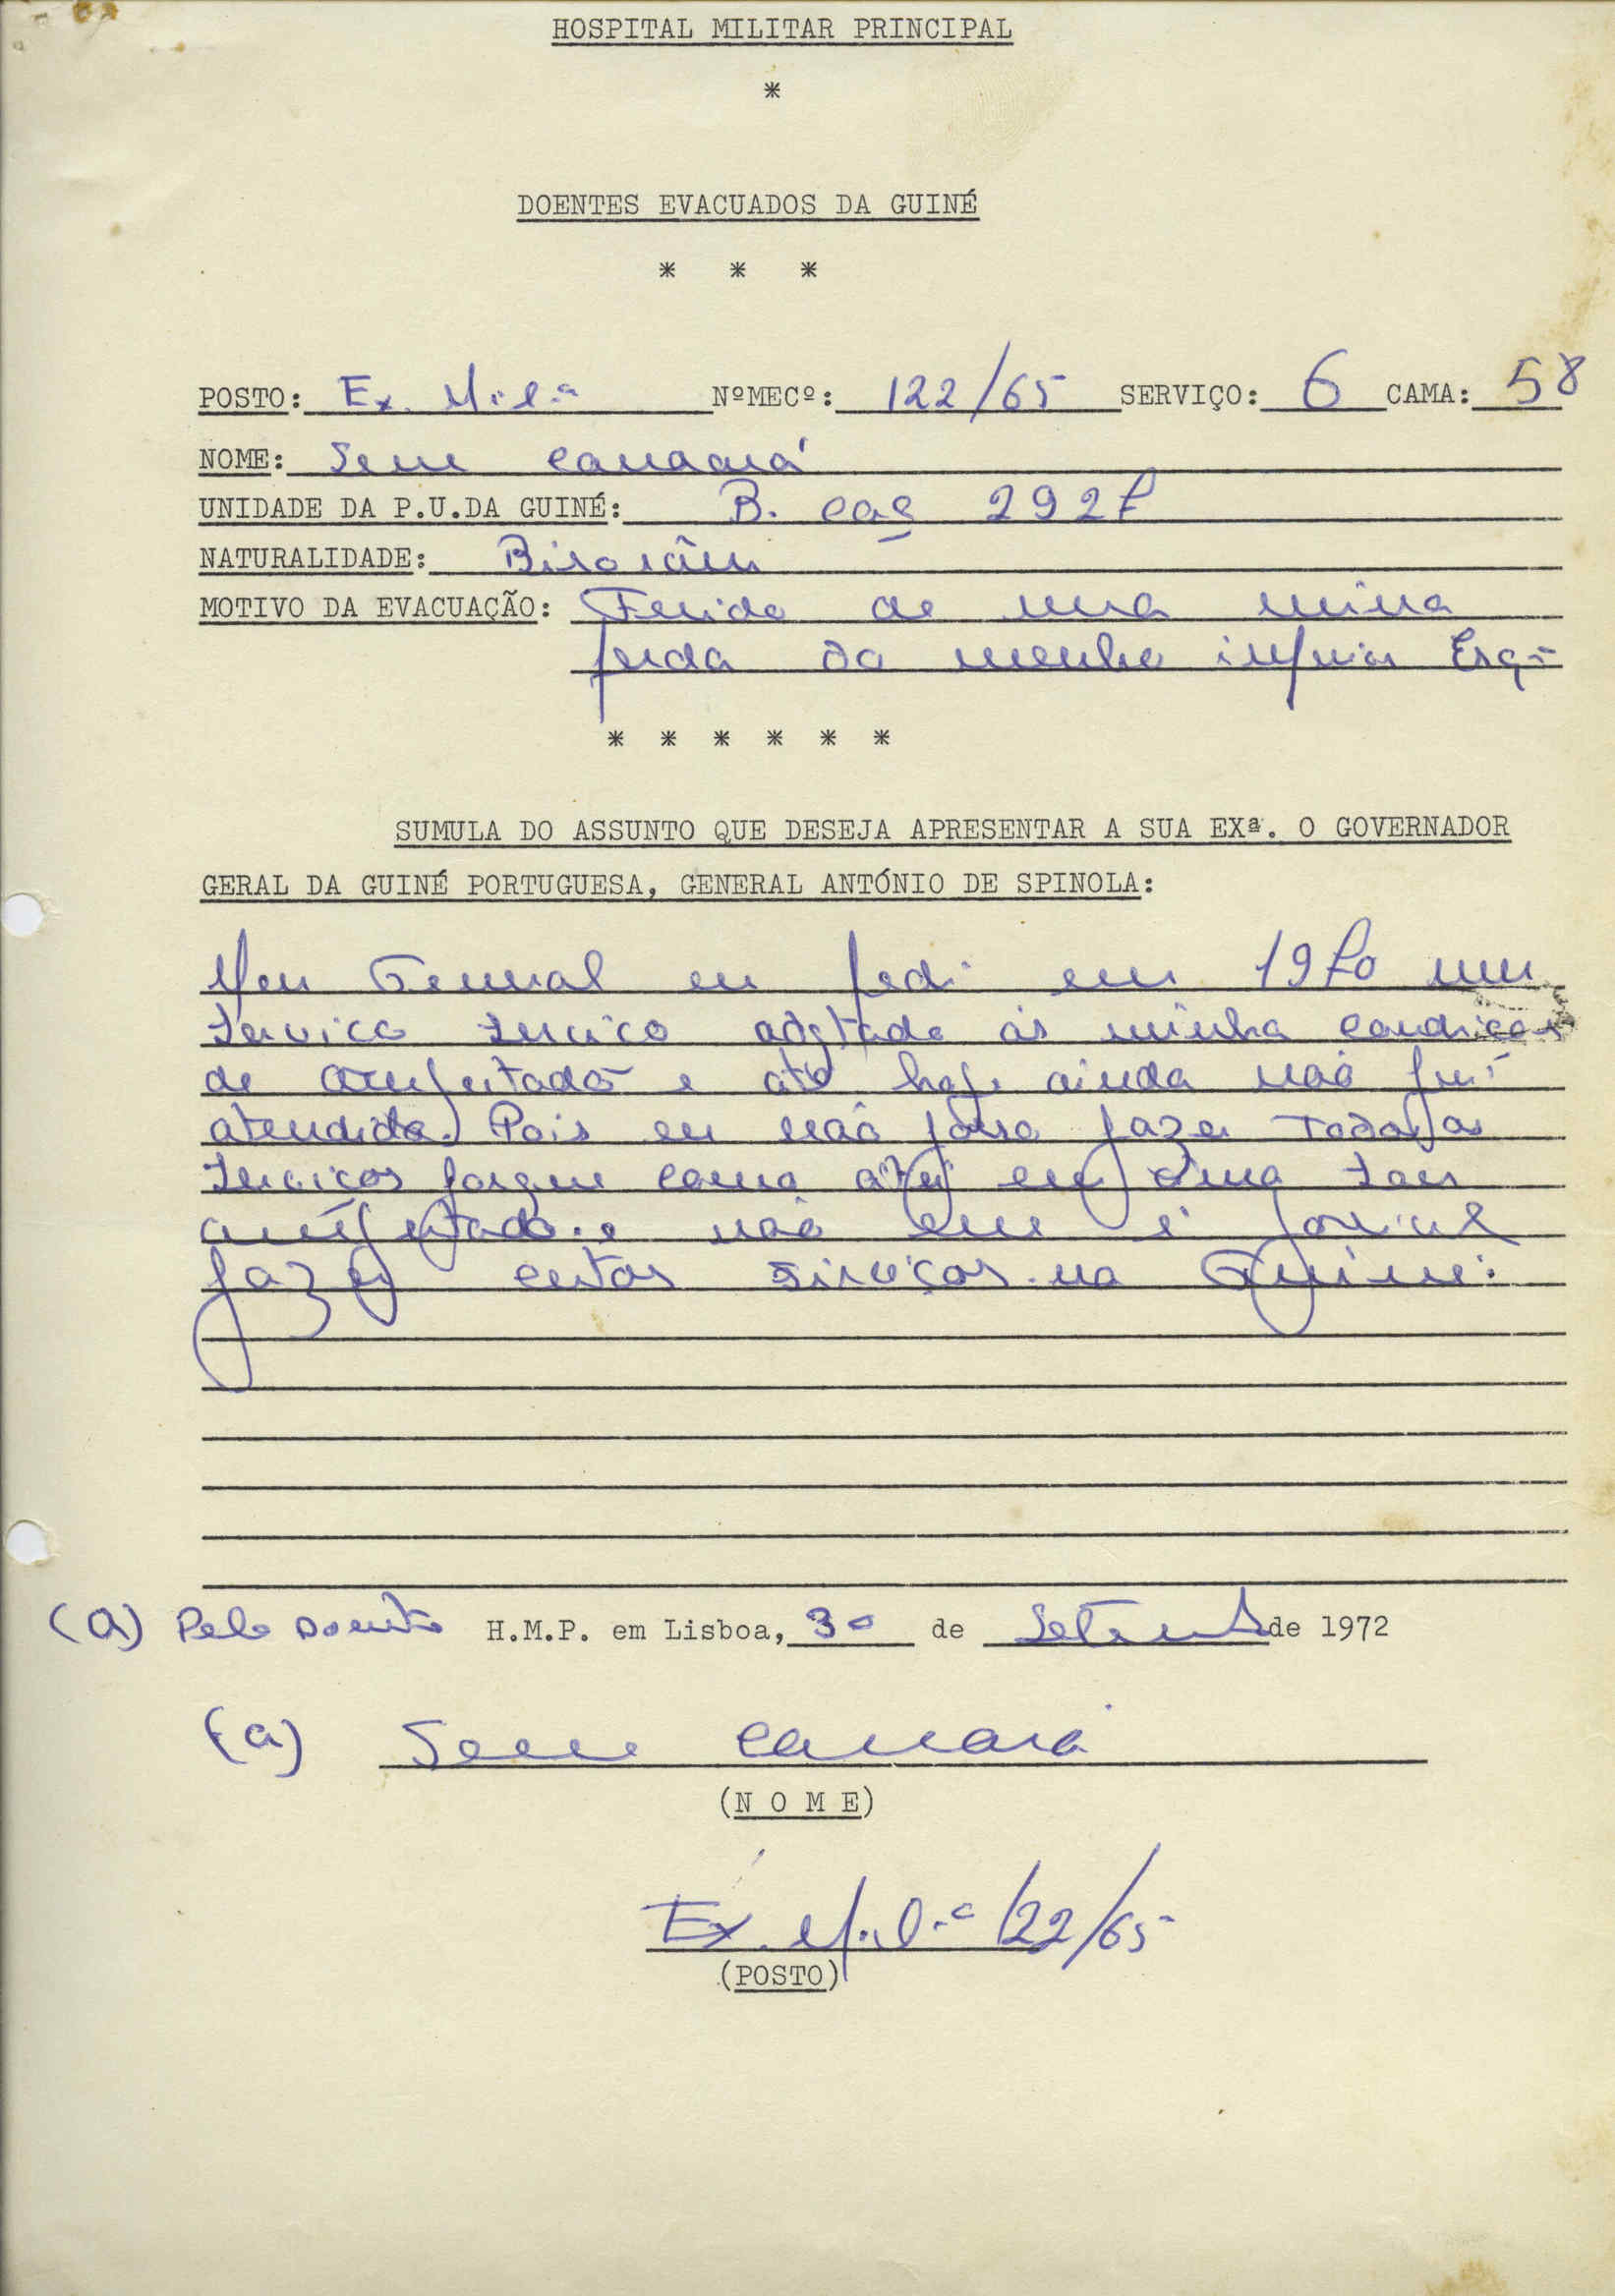 HOSPITAL MILITAR PRINCIPAL
*
DOENTES EVACUADOS DA GUINÉ
* * *
POSTO: Ex. Mil.º NºMECº: 122/65 SERVIÇO: 6 CAMA: 58
NOME: Seme Camará
UNIDADE DA P.U.DA GUINÉ: B. Caç 2927
NATURALIDADE:
MOTIVO DA EVACUAÇÃO: Ferido de uma mina
perda do membro inferior Esqº
* * * * * *
SUMULA DO ASSUNTO QUE DESEJA APRESENTAR A SUA EXª. O GOVERNADOR
GERAL DA GUINÉ PORTUGUESA, GENERAL ANTÓNIO DE SPINOLA:
Meu General eu pedi em 1970 um
serviço adptado ás minha condiçoes
de amputado e até hoje ainda não fui
atendido. Pois eu não posso fazer todos os
serviços porque como atras sou
amputado e não me é possivel
fazer certos serviços na Guiné.
(a) Pelo Doente H.M.P. em Lisboa, 30 de Setembro de 1972
(a) Seme Camará
(N O M E)
Ex. Mil.º 122/65
(POSTO)